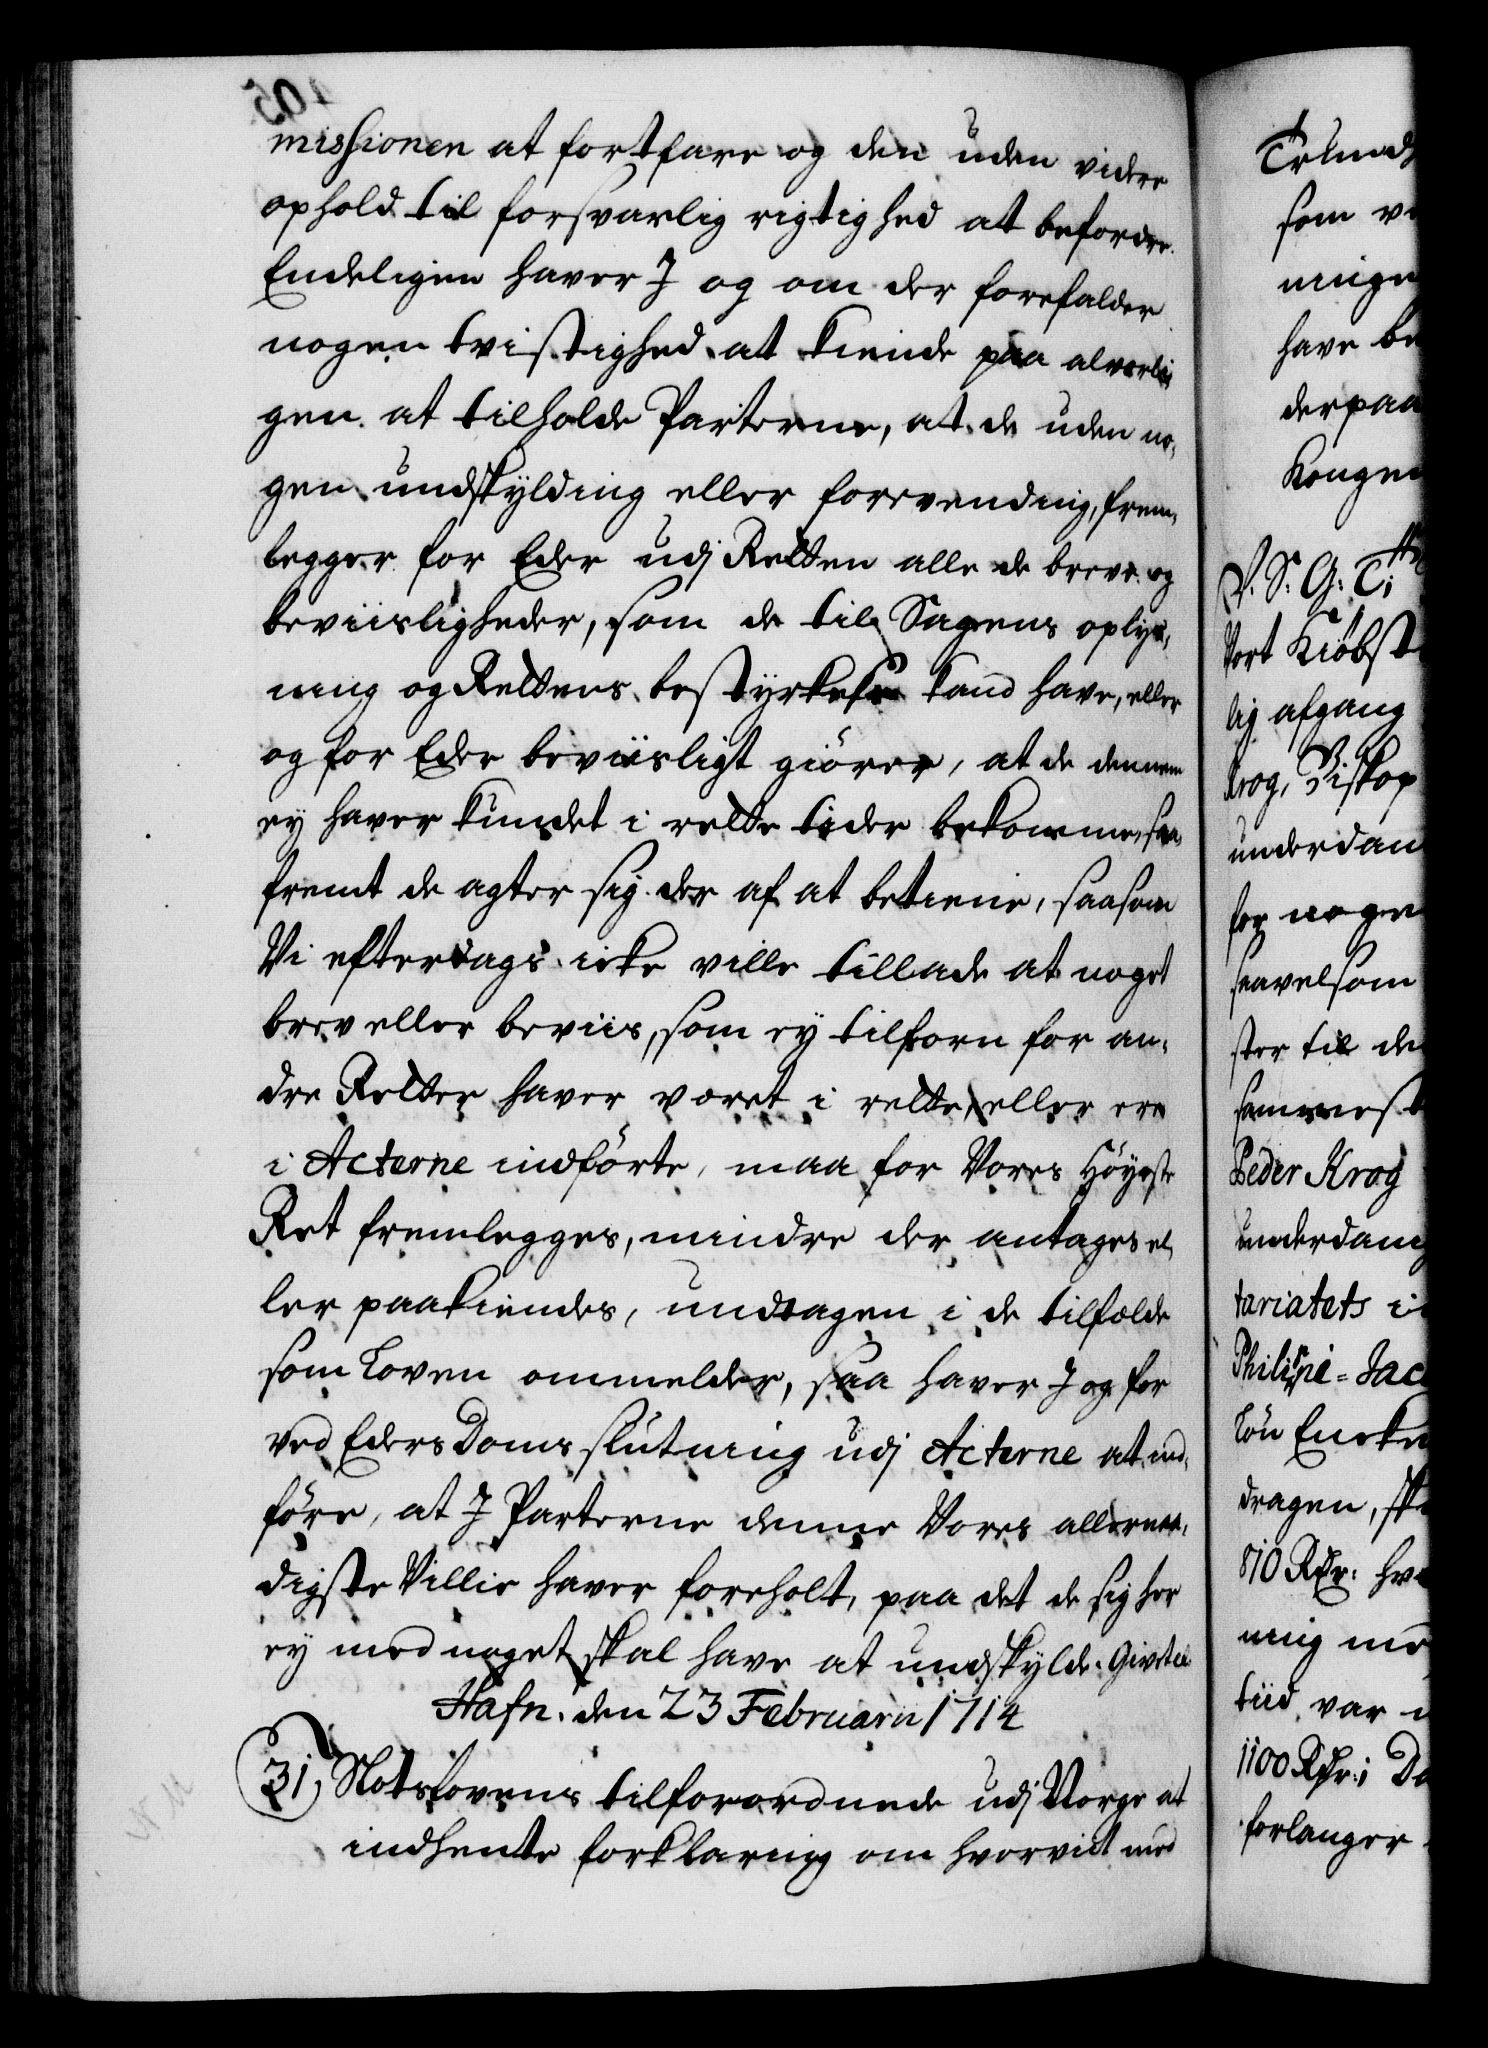 missionen at fortfare og den uden videre
ophold til forsvarlig rigtighed at befordre.
Endeligen haver J og om der forefalder
nogen tvistighed at kiende paa alvorli
gen at tilholde Parterne, at de uden no,
gen undskylding eller forevending, frem,
legger for Eder udj Retten alle de breve og
beviisligheder, som de til Sagens oplys,
ning og Rettens bestyrkelse kand have, eller
og for Eder beviisligt giörer, at de dennem
ey haver kundet i rette tider bekomme, saa,
fremt de agter sig der af at betiene, saasom
Vi efterdags icke ville tillade at noget
brev eller beviis, som ey tilforn for an,
dre Retter haver været i rette, eller ere
i Acterne indförte, maa for Vores Höyeste
Ret fremlegges, mindre der antages el,
ler paakiendes, undtagen i de tilfælde
som Loven ommelder, saa haver J og for
ved Eders Doms slutning udj Acterne at ind,
före, at J Parterne denne Vores allernaa,
digste Villie haver foreholt, paa det de sig her
ey med noget skal have at undskylde. Givet
Hafn. den 23 Februarii 1714
31, Slotslovens tilforordnede udj Norge at
indhente forklaring om hvorvidt med
som
have
derpaa
Kongen
P. S. G. T:
Vort Kiöbst
lig afgang
Krog, Biskop
underdan
for nogen
saavelsom
ster til de
sammest
Peder Krog
underdanig
tariatets i
Jac
Enke
dragen,
810 Rdr:
ning me
tiid var
1100 Rdr: i Da
forlanger